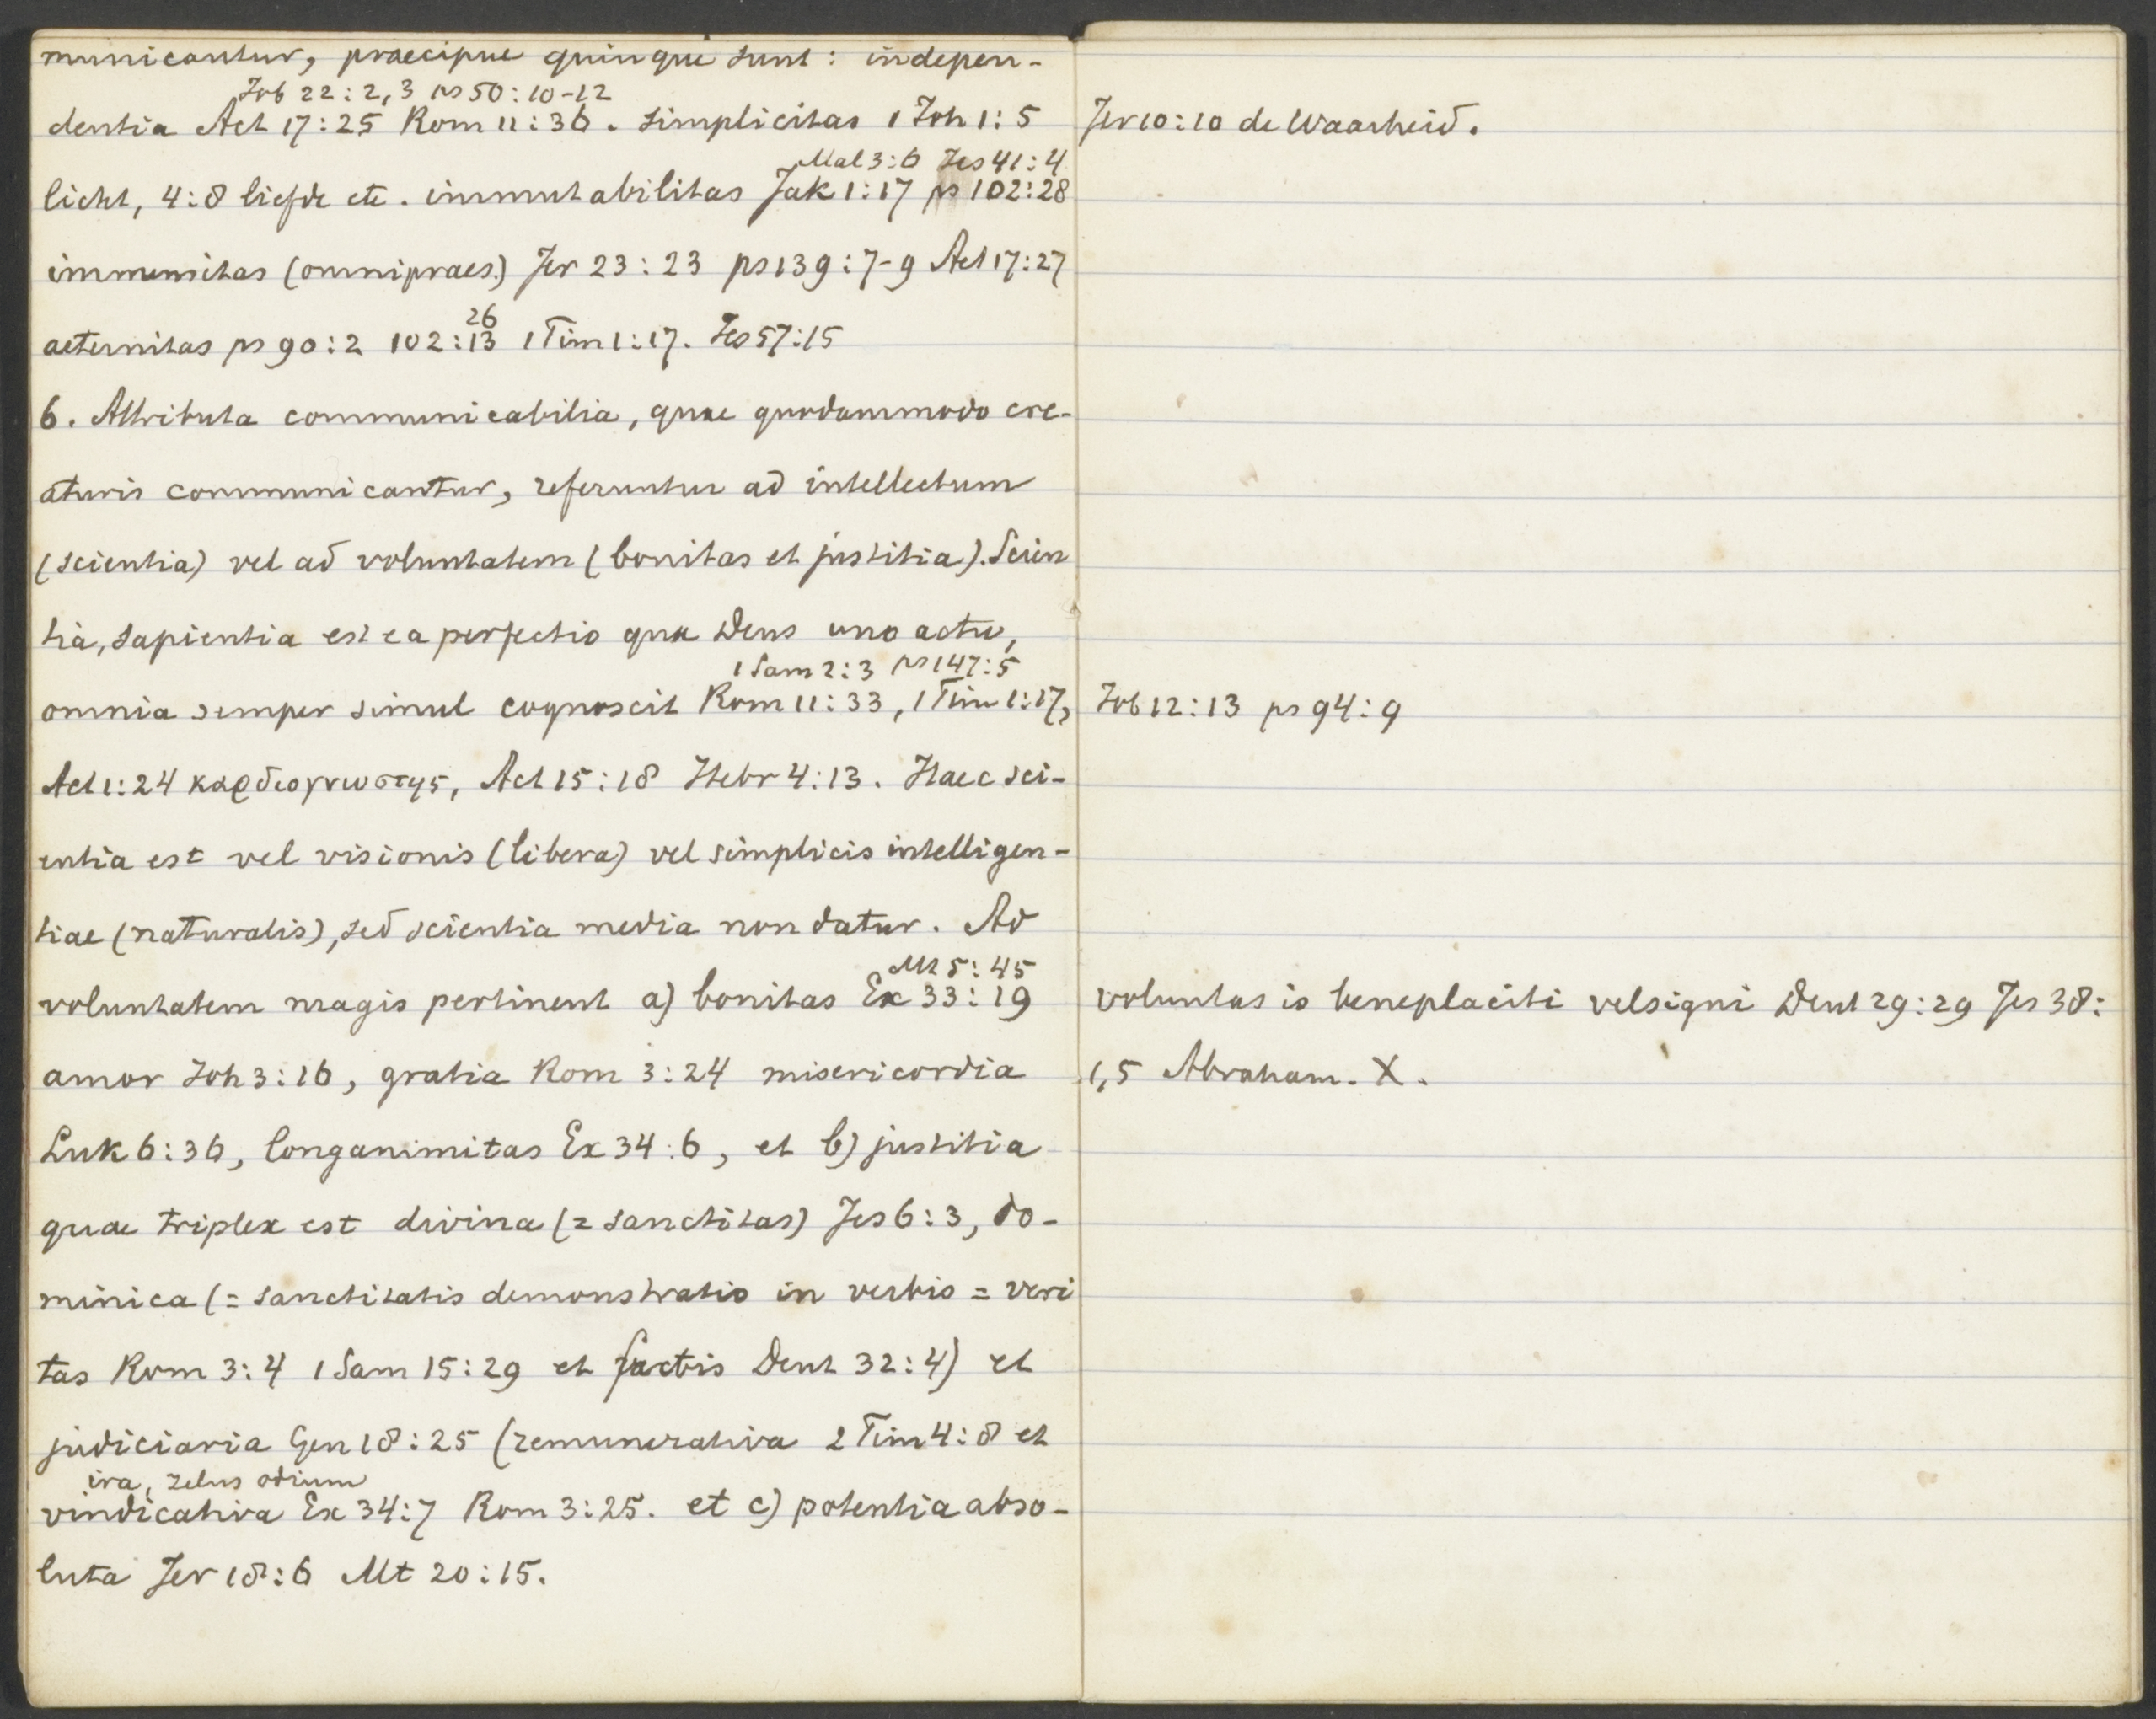 municantur, praecipue quinque sunt: indepen-
Job 22:2,3 ps 50:10-12
dentia Act 17:25 Rom 11:36. simplicitas 1 Joh 1:5
Mal 3:6 Jes 41:4
licht, 4:8 liefde etc. immutabilitas Jak 1:17 ps 102:28
immensitas (omnipraes.) Jer 23:23 ps 139:7-9 Act 17:27
26
aeternitas ps 90:2 102:13 1 Tim 1:17. Jes 57:15
6. Attributa communicabilia, quae quodammodo cre-
aturis communicantur, referuntur ad intellectum
(scientia) vel ad voluntatem (bonitas et justitia). Scien
tia, sapientia est ea perfectio qua Deus uno actu,
1 Sam 2:3 ps 147:5
omnia semper simul cognoscit Rom 11:33, 1 Tim 1:17,
Act 1:24 καρδιογνωστης, Act 15:18 Hebr 4:13. Haec sci-
entia est vel visionis (libera) vel simplicis intelligen-
tiae (naturalis), sed scientia media non datur. Ad
Mt 5:45
voluntatem magis pertinent a) bonitas Ex 33:19
amor Joh 3:16, gratia Rom 3:24 misericordia
Luk 6:36, longanimitas Ex 34:6, et b) justitia
quae triplex est divina (= sanctitas) Jes 6:3, do-
minica (= sanctitatis demonstratio in verbis = veri
tas Rom 3:4 1 Sam 15:29 et factis Deut 32:4) et
judiciaria Gen 18:25 (remunerativa 2 Tim 4:8 et
ira, zelus odium
vindicativa Ex 34:7 Rom 3:25. et c) potentia abso-
luta Jer 18:6 Mt 20:15.
Jer 10:10 de Waarheid.
Job 12:13 ps 94:9
voluntas is beneplaciti vel signi Deut 29:29 Jes 38:
1,5 Abraham. X.